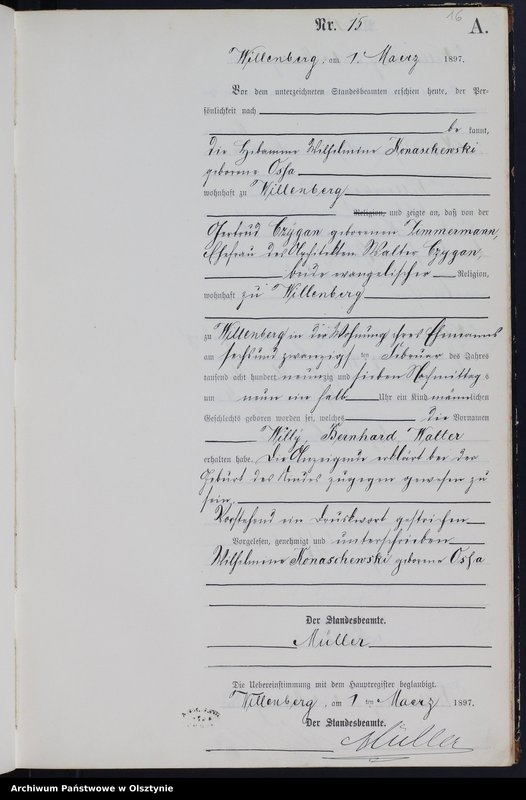 16
Nr. 15
A.
Willenberg, am 1. Maerz 1897.
Vor dem unterzeichneten Standesbeamten erschien heute, der Per-
sönlichkeit nach
be kannt,
die Hebamme Wilhelmine Konaschewski
geborene Ossa
wohnhaft zu Willenberg
Religion, und zeigte an, daß von der
Gertrud Czygan geborenen Zimmermann,
Ehefrau des Architekten Walter Czygan,
beide evangelischer Religion,
wohnhaft zu Willenberg
zu Willenberg in der Wohnung ihres Ehemanns
am sechsundzwanzigsten ten Februar des Jahres
tausend acht hundert neunzig und sieben Nachmittags
um neun ein halb Uhr ein Kind männlichen
Geschlechts geboren worden sei, welches die Vornamen
Willy, Bernhard Walter
erhalten habe. Die Anzeigende erklärt bei der
Geburt des Kindes zugegen gewesen zu
sein.
Vorstehend ein Druckwort gestrichen
Vorgelesen, genehmigt und unterschrieben
Wilhelmine Konaschewski geborene Ossa
Der Standesbeamte.
Müller
Die Uebereinstimmung mit dem Hauptregister beglaubigt.
Willenberg, am 1 ten Maerz 1897.
Der Standesbeamte.
Müller
Archiwum Państwowe w Olsztynie